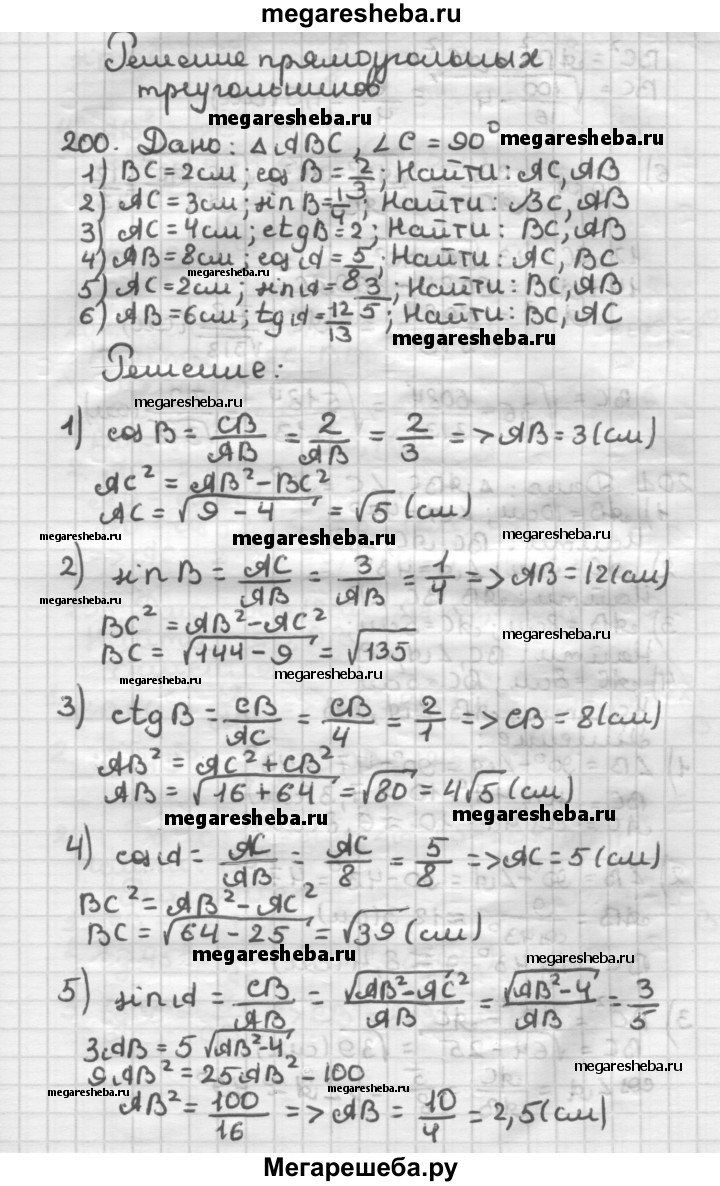 megaresheba.ru
Решение прямоугольных
треугольников
200. Дано: △ABC, ∠C = 90° megaresheba.ru
1) BC = 2см; cos B = 2/3; Найти: AC, AB
2) AC = 3см; sin B = 1/4; Найти: BC, AB
3) AC = 4см; ctg B = 2; Найти: BC, AB
4) AB = 8см; cos A = 5/8; Найти: AC, BC
megaresheba.ru
5) AC = 2см; sin A = 3/5; Найти: BC, AB
6) AB = 6см; tg A = 12/13; Найти: BC, AC
megaresheba.ru
Решение:
megaresheba.ru
1) cos B = CB/AB = 2/AB = 2/3 => AB = 3 (см)
AC² = AB² - BC²
AC = √(9 - 4) = √5 (см)
megaresheba.ru megaresheba.ru megaresheba.ru
2) sin B = AC/AB = 3/AB = 1/4 => AB = 12 (см)
megaresheba.ru
BC² = AB² - AC²
megaresheba.ru
BC = √(144 - 9) = √135
megaresheba.ru megaresheba.ru
3) ctg B = CB/AC = CB/4 = 2/1 => CB = 8 (см)
AB² = AC² + CB²
AB = √(16 + 64) = √80 = 4√5 (см)
megaresheba.ru megaresheba.ru
4) cos A = AC/AB = AC/8 = 5/8 => AC = 5 (см)
BC² = AB² - AC²
BC = √(64 - 25) = √39 (см)
megaresheba.ru megaresheba.ru
5) sin A = CB/AB = √(AB² - AC²)/AB = √(AB² - 4)/AB = 3/5
3AB = 5√(AB² - 4)
megaresheba.ru
9AB² = 25AB² - 100
megaresheba.ru megaresheba.ru
AB² = 100/16 => AB = 10/4 = 2,5 (см)
Мегарешеба.ру